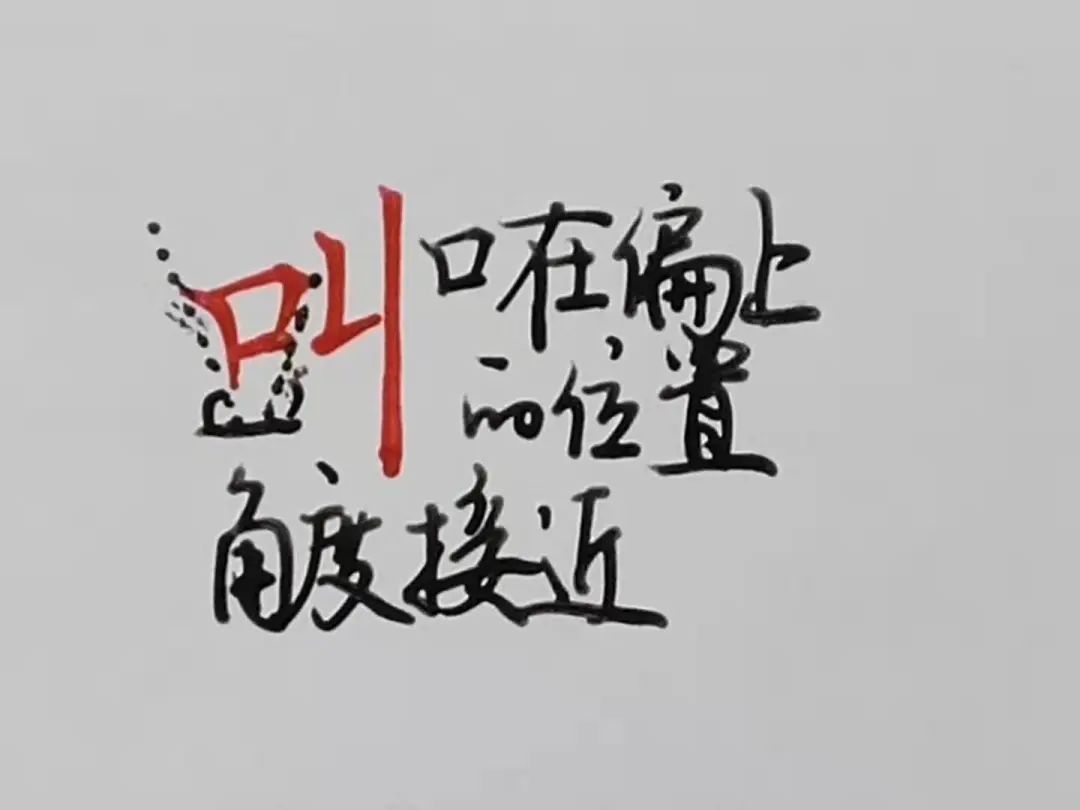 叫口在偏上
的位置
角度接近